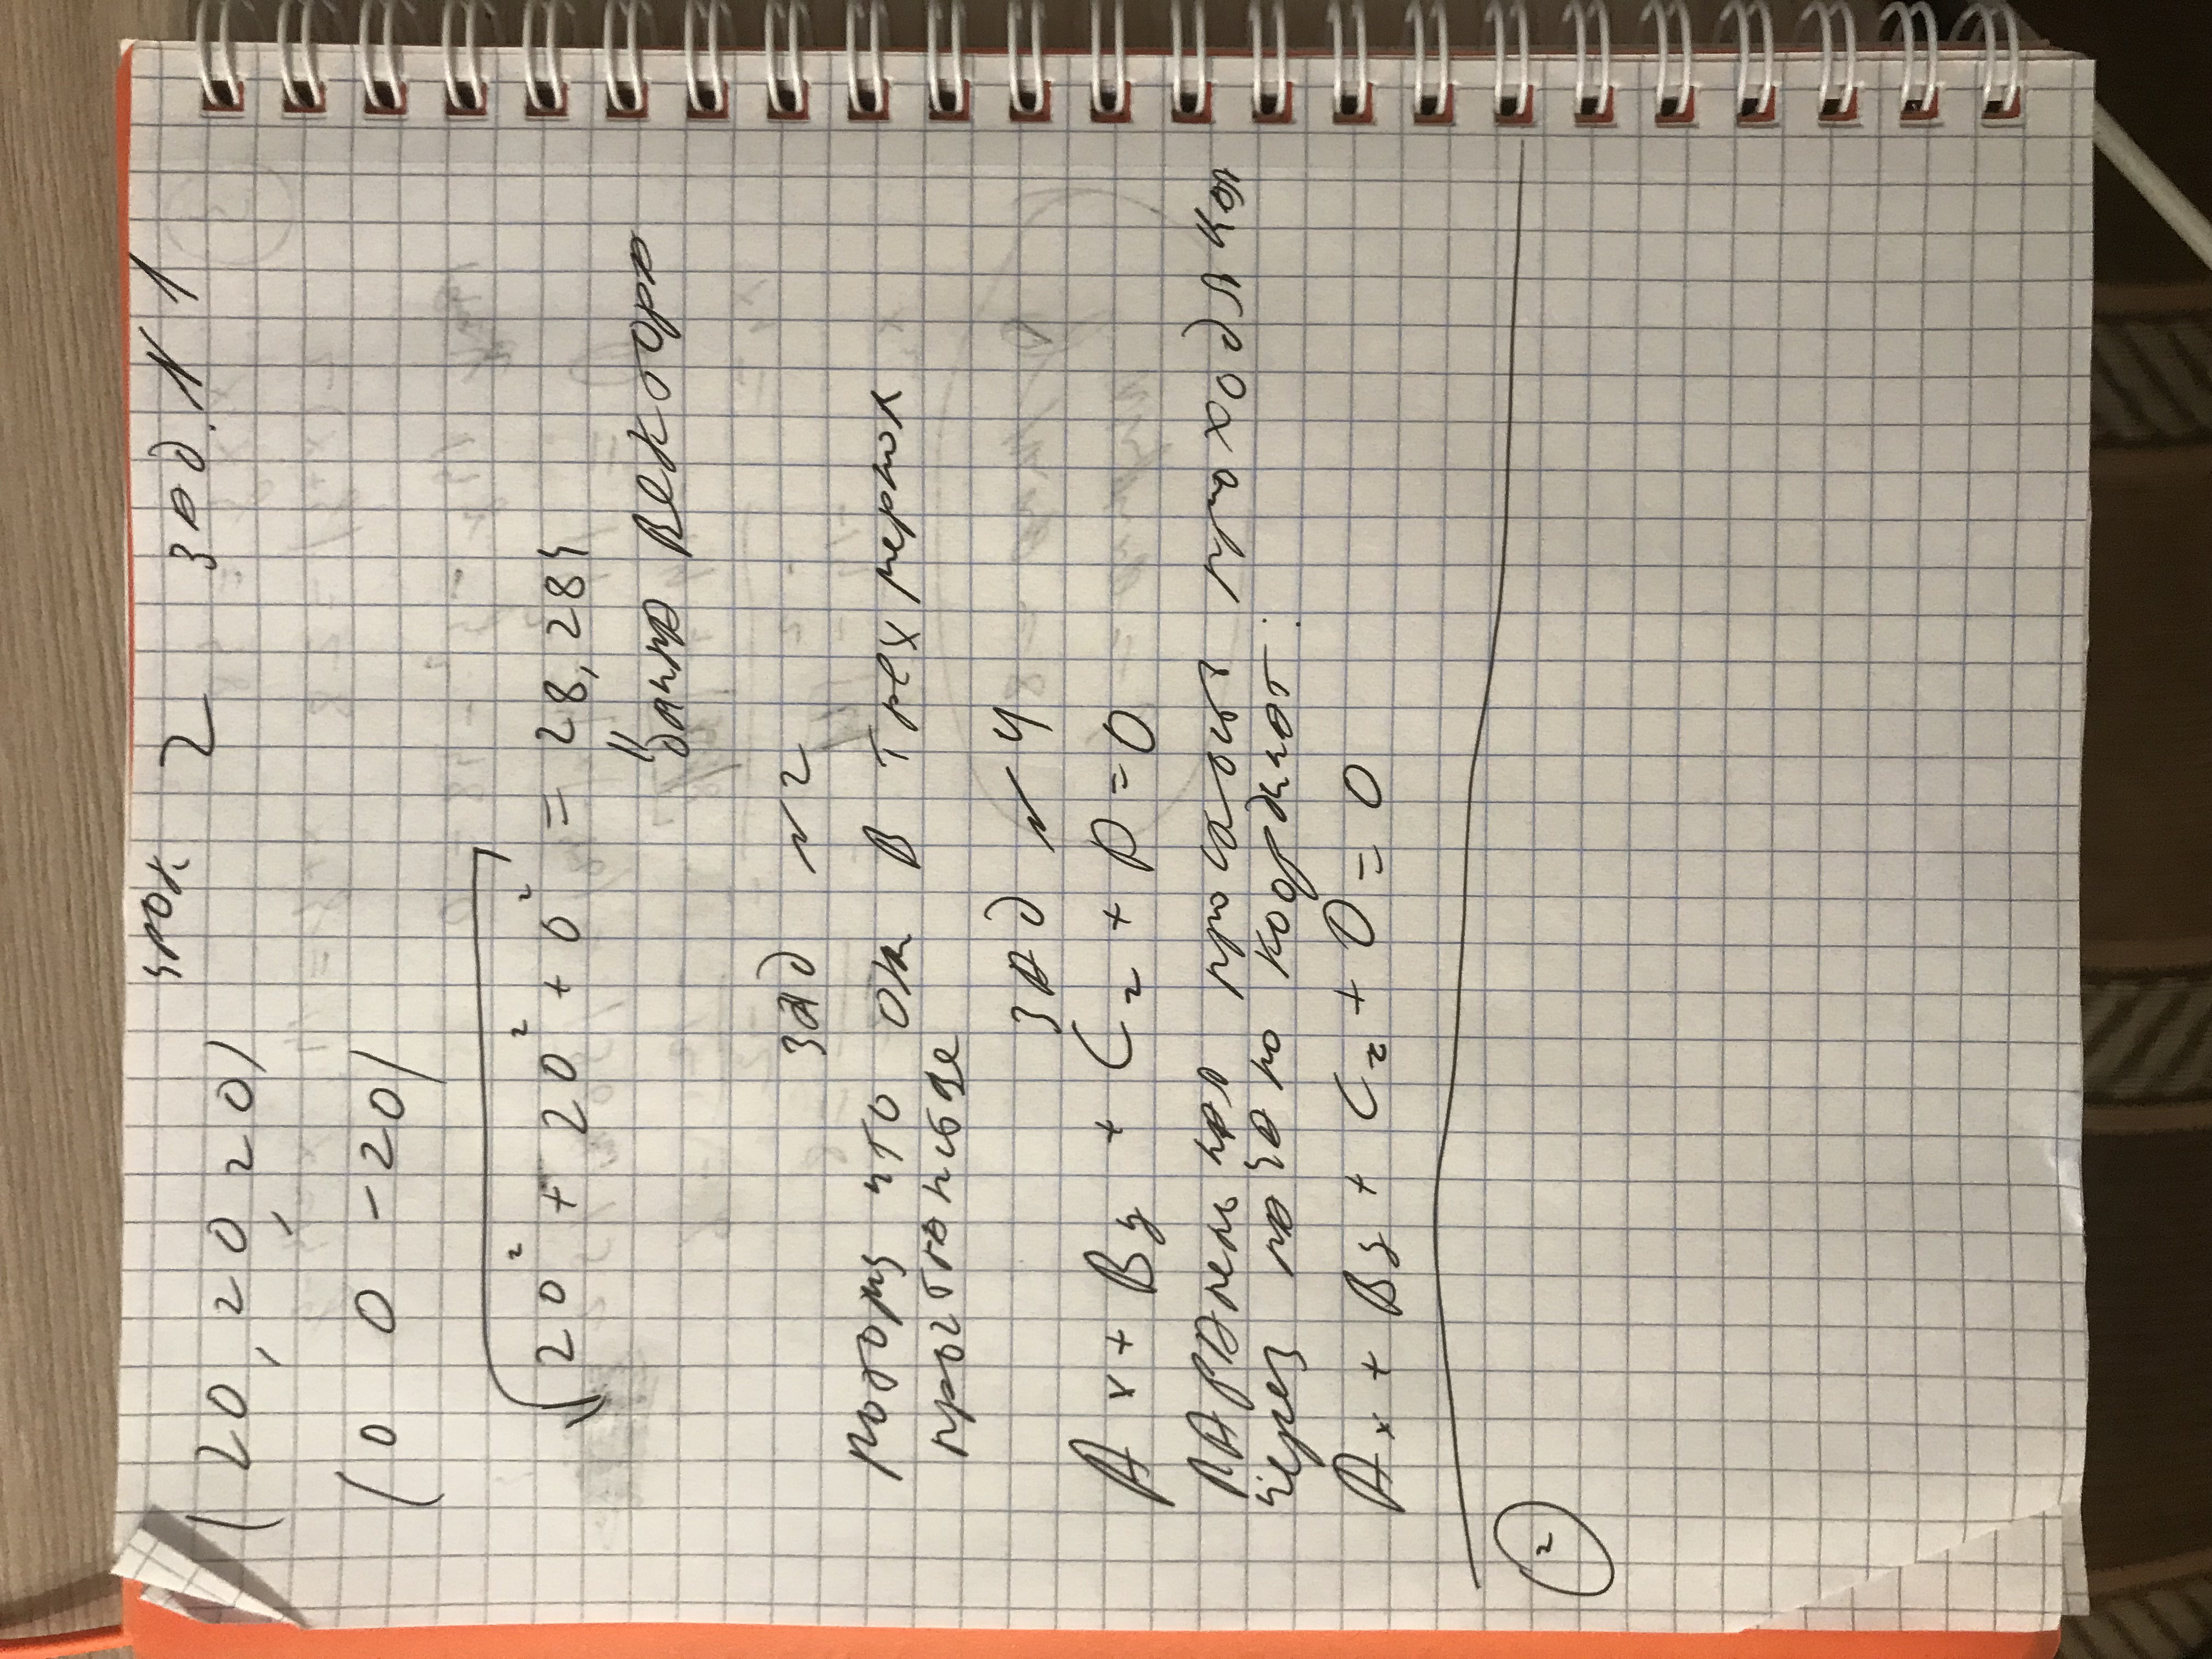 урок 2 зад. N 1
(20, 20, 20)
(0 0 -20)
√20² + 20² + 0² = 28,284
" длина вектора
зад N 2
потому что они в трехмерном
пространстве
зад N 4
Ax + By + Cz + D = 0
паралельная плоскость проходящая
через начало координат:
Ax + By + Cz + 0 = 0
2